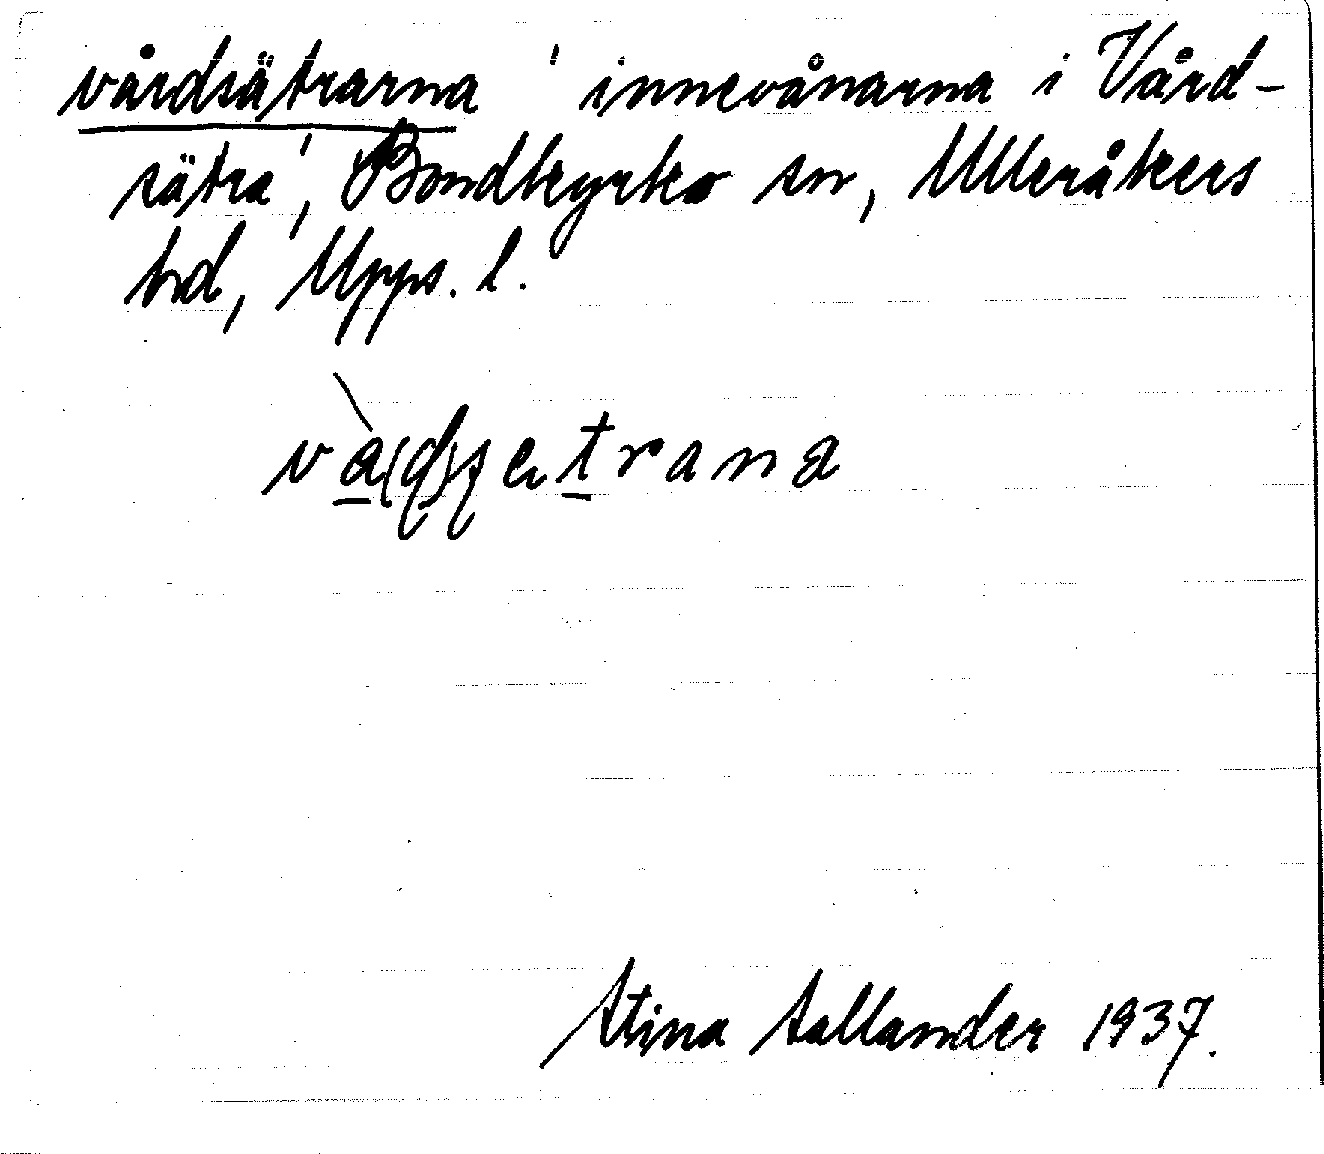 vårdsätrarna 'innevånarna i Vård-
sätra', Bondkyrko sn, Ulleråkers
hd, Upps. l.
Stina Sallander 1937.